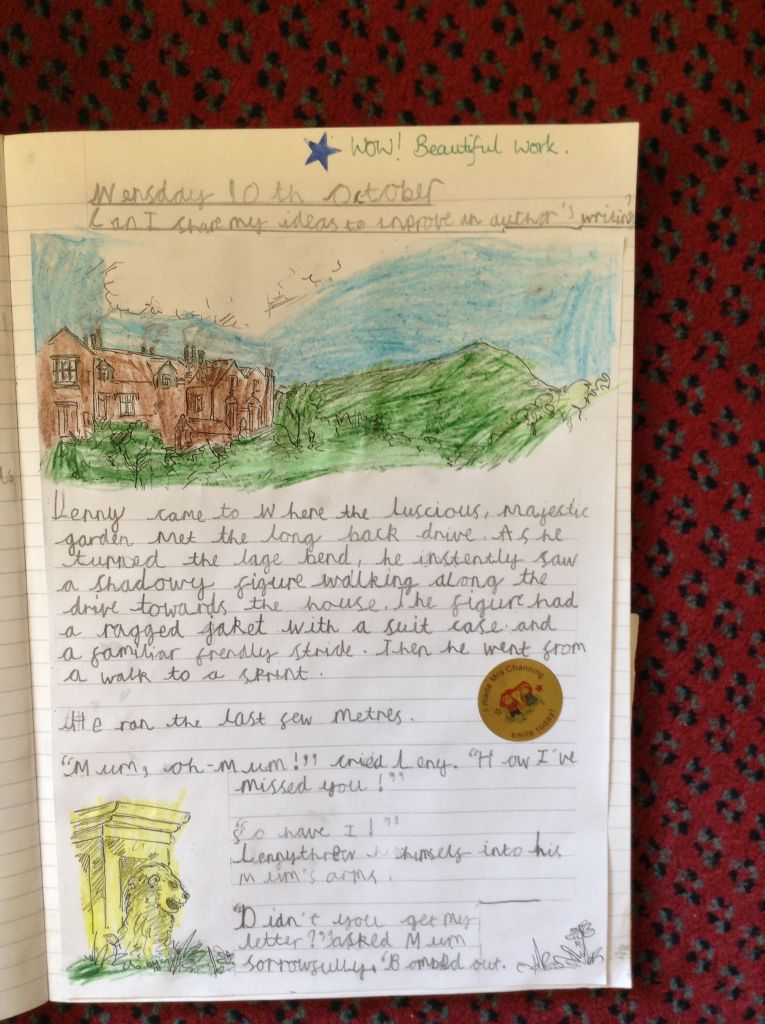 WOW! Beautiful work.
Wensday 10th October
Can I share my ideas to improve an author's writing?
Lenny came to where the luscious, majestic
garden met the long back drive. As he
turned the lage bend, he instently saw
a shadowy figure walking along the
drive towards the house. The figure had
a ragged jaket with a suit case and
a familiar frendly stride. Then he went from
a walk to a sprint.
He ran the last few metres.
"Mum, oh-Mum!" cried Leny. "How I've
missed you!"
"So have I!"
Lenny threw himself into his
Mum's arms.
"Didn't you get my
letter?" asked Mum
sorrowfully. out.
I made Mrs Channing
smile today!